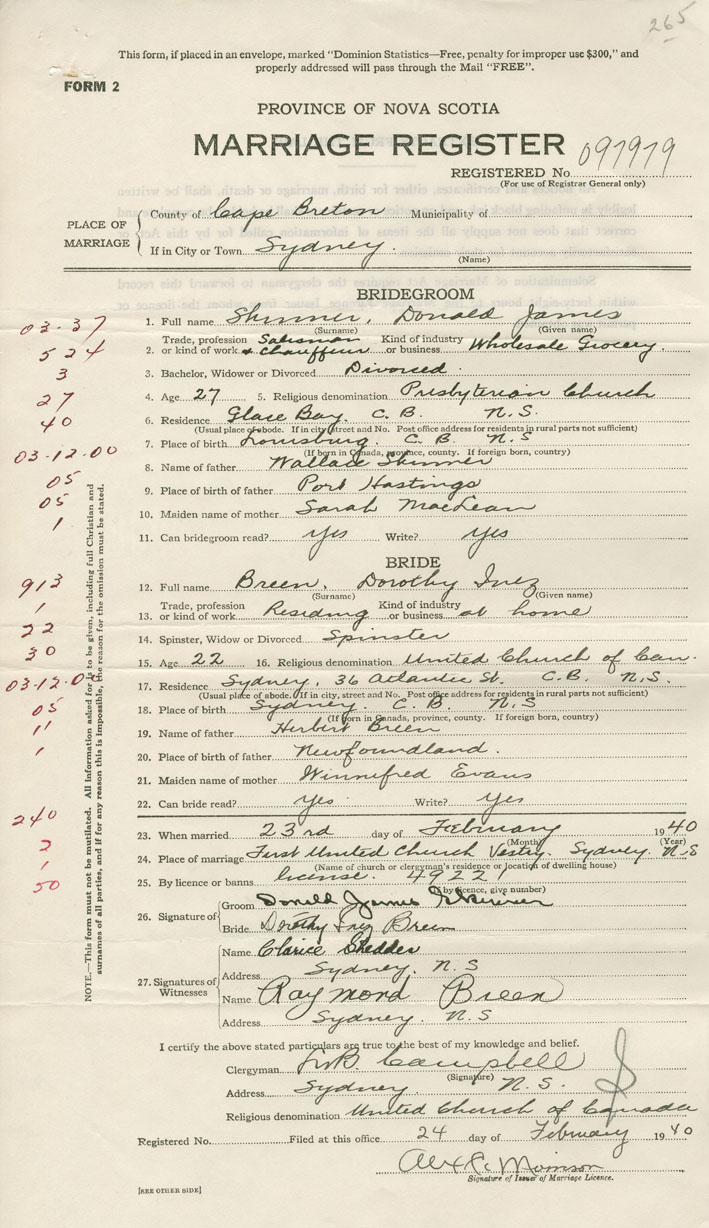 265
This form, if placed in an envelope, marked "Dominion Statistics—Free, penalty for improper use $300," and
properly addressed will pass through the Mail "FREE".
FORM 2
PROVINCE OF NOVA SCOTIA
MARRIAGE REGISTER
097979
REGISTERED No.
(For use of Registrar General only)
PLACE OF MARRIAGE
County of Cape Breton Municipality of
If in City or Town Sydney.
(Name)
BRIDEGROOM
03-37
1. Full name Skinner, Donald James
(Surname) (Given name)
524
Trade, profession Salesman Kind of industry
2. or kind of work & Chauffeur or business Wholesale Grocery.
3
3. Bachelor, Widower or Divorced Divorced.
27
4. Age 27 5. Religious denomination Presbyterian Church
40
6. Residence Glace Bay. C. B. N. S.
(Usual place of abode. If in city, street and No. Post office address for residents in rural parts not sufficient)
03-12-00
7. Place of birth Louisburg. C. B. N. S
(If born in Canada, province, county. If foreign born, country)
05
8. Name of father Wallace Skinner
05
9. Place of birth of father Port Hastings
1
10. Maiden name of mother Sarah MacLean
11. Can bridegroom read? yes Write? yes
BRIDE
913
12. Full name Breen, Dorothy Inez
(Surname) (Given name)
1
Trade, profession Kind of industry
13. or kind of work Residing or business at home
22
14. Spinster, Widow or Divorced Spinster
30
15. Age 22 16. Religious denomination United Church of Can.
03-12-0
17. Residence Sydney, 36 Atlantic St. C. B. N. S.
(Usual place of abode. If in city, street and No. Post office address for residents in rural parts not sufficient)
05
18. Place of birth Sydney. C. B. N. S
(If born in Canada, province, county. If foreign born, country)
11
19. Name of father Herbert Breen
1
20. Place of birth of father Newfoundland.
21. Maiden name of mother Winnefred Evans
22. Can bride read? yes Write? yes
240
23. When married 23rd day of February 1940
(Month) (Year)
2
24. Place of marriage First United Church Vestry. Sydney. N. S
(Name of church or clergyman's residence or location of dwelling house)
1
50
25. By licence or banns license. 4922
(by licence, give number)
26. Signature of
Groom Donald James Skinner
Bride Dorothy Inez Breen
27. Signatures of Witnesses
Name Clarice Shedden
Address Sydney. N. S
Name Raymond Breen
Address Sydney. N. S
NOTE.—This form must not be mutilated. All Information asked for is to be given, including full Christian and
surnames of all parties, and if for any reason this is impossible, the reason for the omission must be stated.
I certify the above stated particulars are true to the best of my knowledge and belief.
Clergyman Campbell
(Signature)
Address Sydney. N. S.
Religious denomination United Church of Canada
Registered No. Filed at this office 24 day of February 1940
Signature of Issuer of Marriage Licence.
[SEE OTHER SIDE]